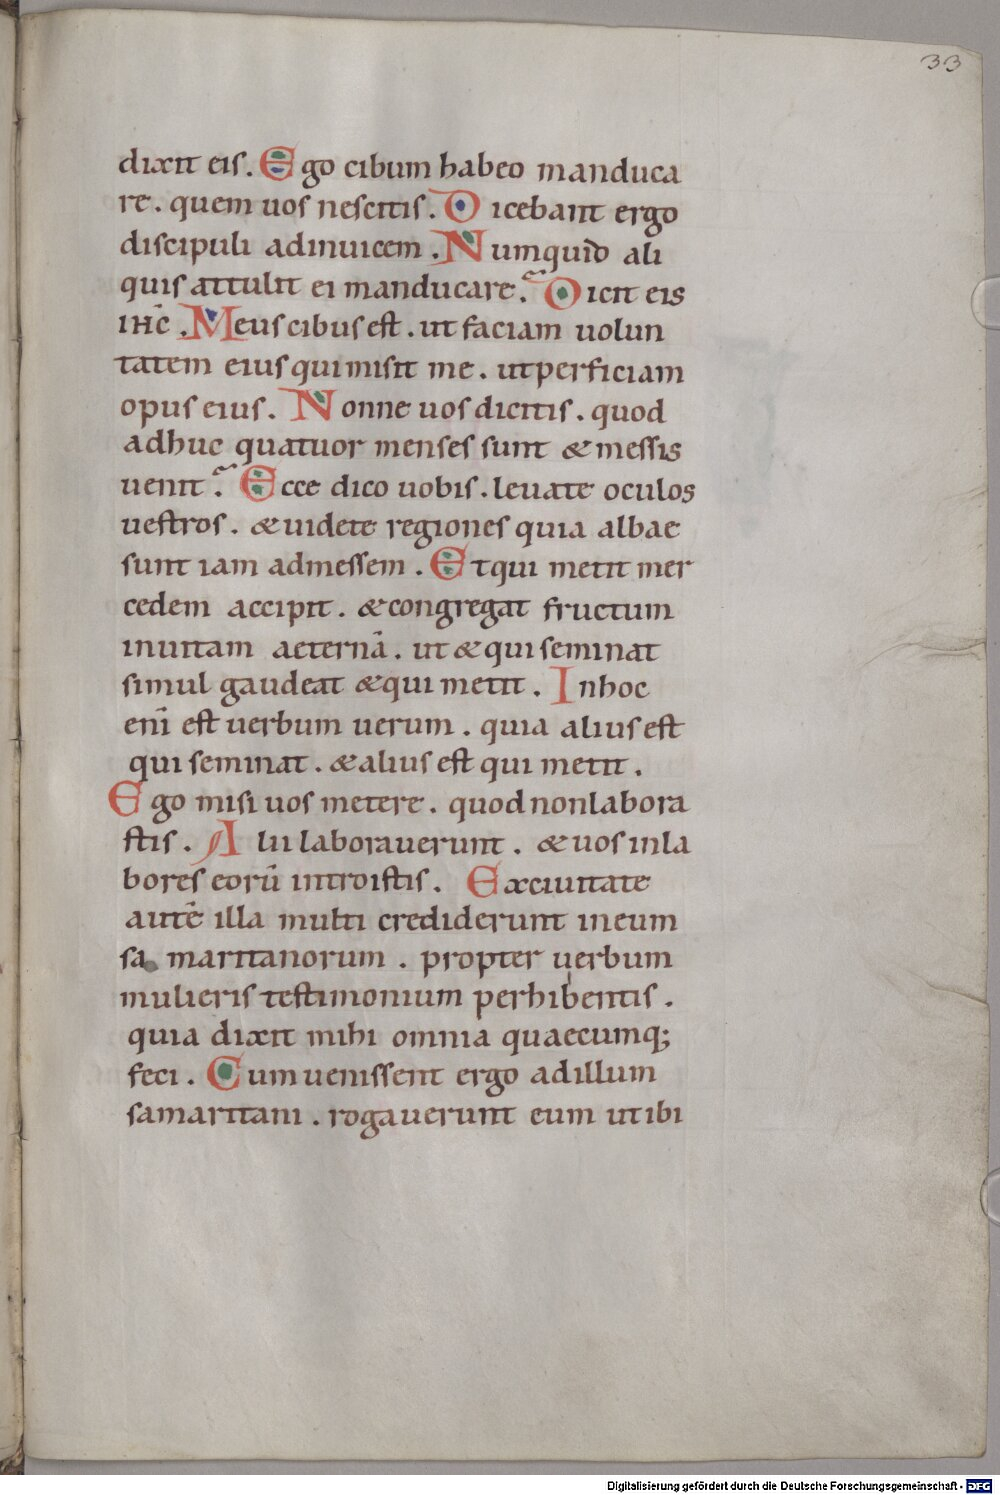 33
dixit eis. Ego cibum habeo manduca
re. quem uos nescitis. Dicebant ergo
discipuli adinuicem. Numquid ali
quis attulit ei manducare? Dicit eis
ihc̄. Meus cibus est. ut faciam uolun
tatem eius qui misit me. ut perficiam
opus eius. Nonne uos dicitis. quod
adhuc quatuor menses sunt & messis
uenit? Ecce dico uobis. leuate oculos
uestros. & uidete regiones quia albae
sunt iam admessem. Et qui metit mer
cedem accipit. & congregat fructum
inuitam aeternā. ut & qui seminat
simul gaudeat & qui metit. Inhoc
enī est uerbum uerum. quia alius est
qui seminat. & alius est qui metit.
Ego misi uos metere. quod non labora
stis. Alii laborauerunt. & uos inla
bores eorū introistis. Ex ciuitate
autē illa multi crediderunt ineum
sa maritanorum. propter uerbum
mulieris testimonium perhibentis.
quia dixit mihi omnia quaecumq;
feci. Cum uenissent ergo adillum
samaritani. rogauerunt eum ut ibi
Digitalisierung gefördert durch die Deutsche Forschungsgemeinschaft - DFG